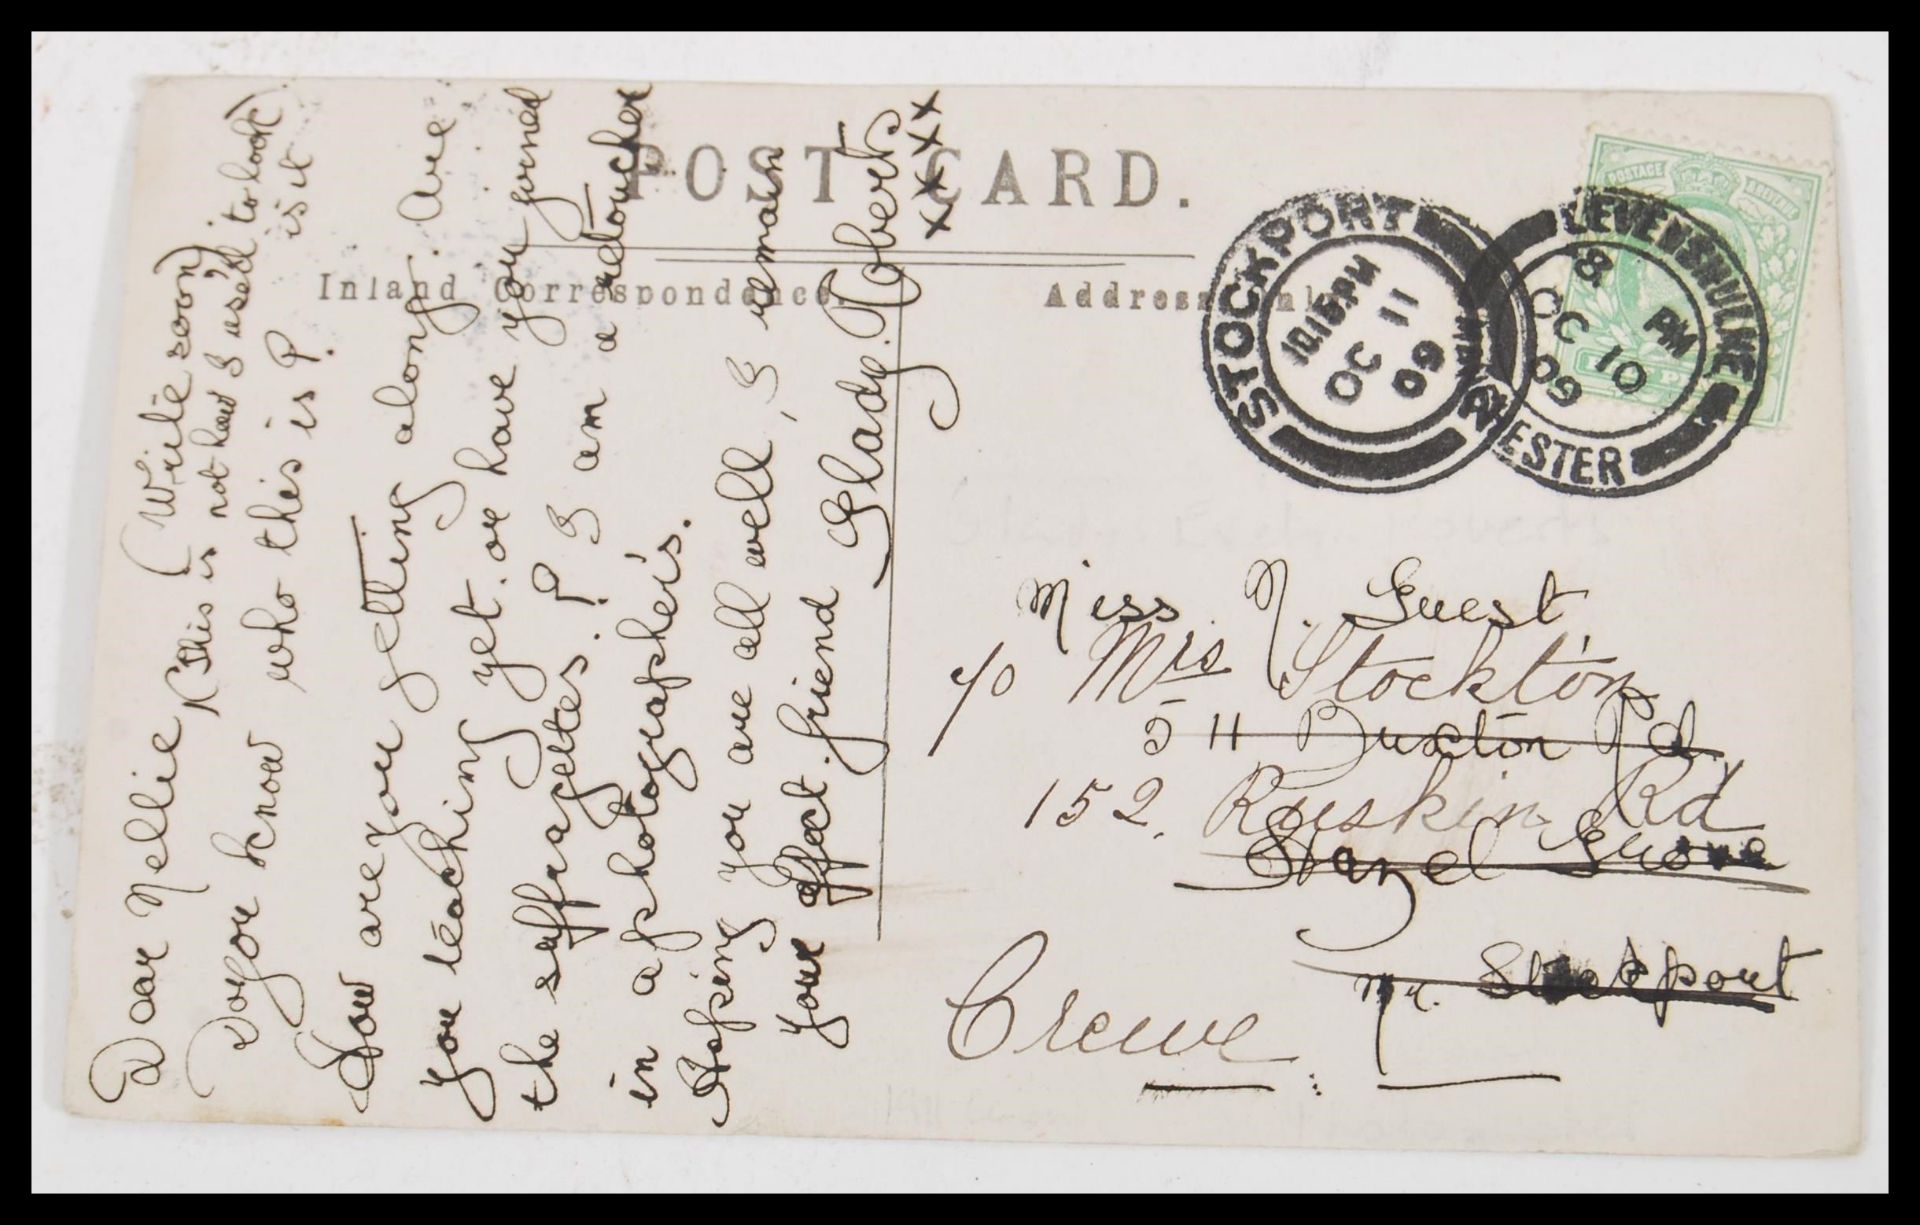 POST CARD.
Inland Correspondence.
Address Only
Dear Nellie (Write soon)
(This is not how I used to look)
Do you know who this is? is it
How are you getting along. Are
you teaching yet. or have you joined
the suffragettes.? I am a retoucher
in a photographer's.
Hoping you are all well, I remain
your affect. friend Gladys. Roberts
xxxxx
STOCKPORT
10.15 PM
OC 11
09
LEVENSHULME
MANCHESTER
8 PM
OC 10
09
POSTAGE REVENUE
Miss N. Guest
c/o Mrs Stockton
511 Buxton Rd,
152, Ruskin Rd
Hazel Grove
Nr. Stockport
Crewe